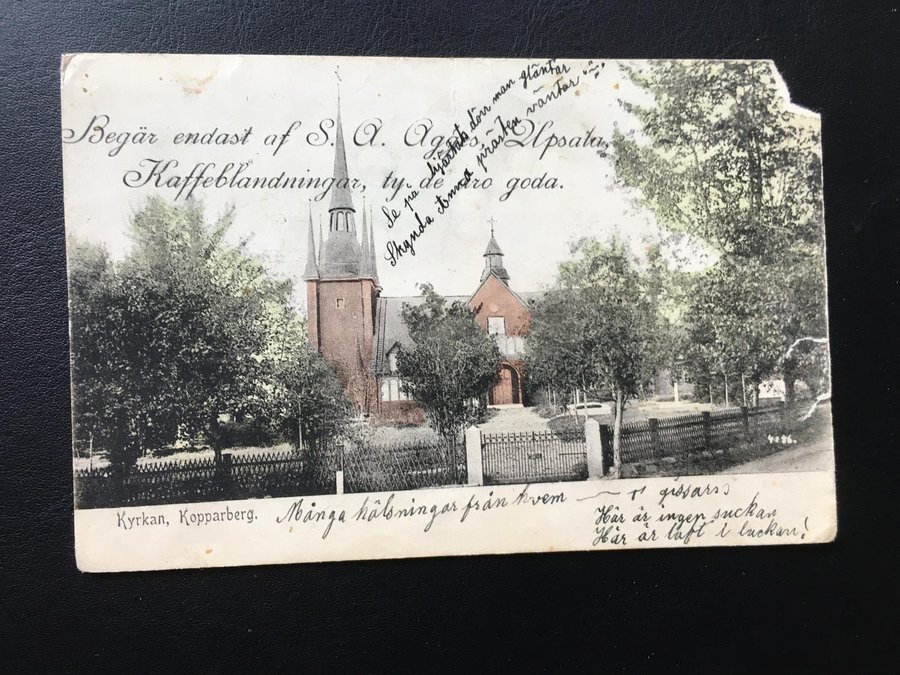 Begär endast af S. A. Ågrens, Upsala,
Kaffeblandningar, ty de äro goda.
Se på hjärtats dörr man gläntar
Skynda Anna prästen väntar
4086.
Kyrkan, Kopparberg.
Många hälsningar från hvem — gissars
Här är ingen suckan
Här är luft i luckan!